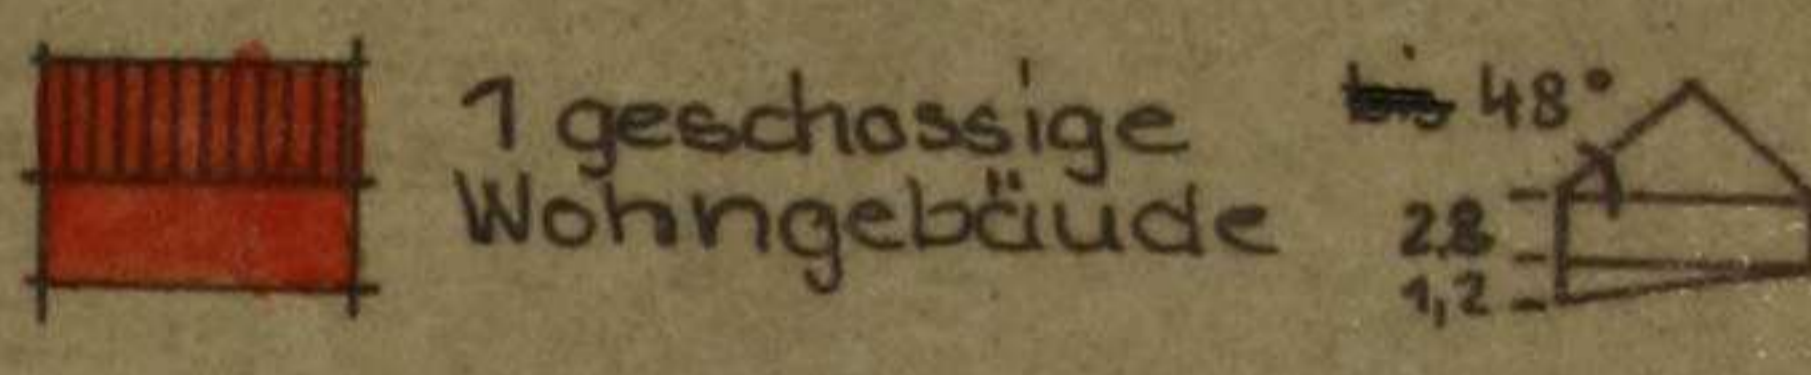 1 geschossige
Wohngebäude
48°
2.8
1,2